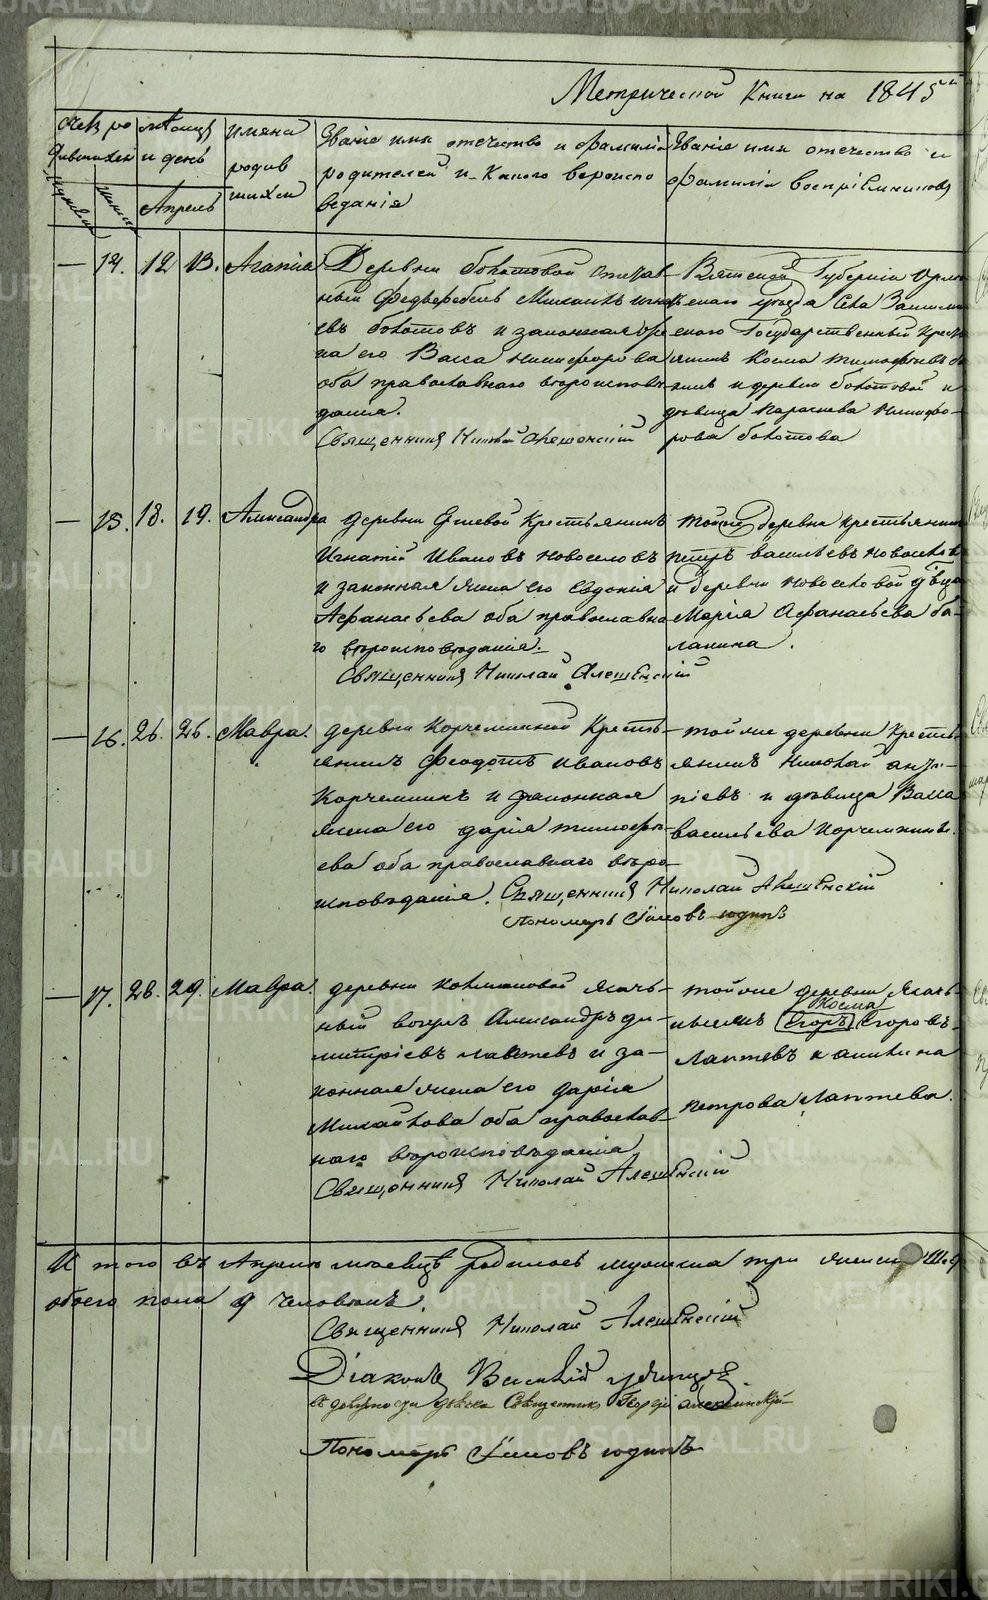 METRIKI.GASO-URAL.RU
Метрической Книги на 1845й
Счетъ ро
дившихся
мужеска
женска
месяцъ
и день
Апрель
имяна
родив
шихся
Званіе имя отечество и фамилія
родителей и какого вероиспо
веданія
Званіе имя отечество и
фамилія воспріемниковъ
14. 12 13. Агапія
Деревни Болотовой отстав
ный Фельдфебель
евъ Болотовъ и законная же
на его Васса Никифорова
оба православнаго вероиспове
данія.
Священникъ Николай Алешенскій
Вятской Губерніи Орлов
скаго уезда Села
скаго Государственный кресть
янинъ Косма Тимофеевъ
и деревни Болотовой и
девица Параскева Никифо-
рова Болотова
15. 18. 19. Александра
деревни Крестьянинъ
Игнатій Ивановъ Новоселовъ
и законная жена его Евдокія
Афанасьева оба православна
го вероисповеданія.
Священникъ Николай Алешенскій
Тойже деревни крестьянинъ
Петръ Васильевъ Новоселовъ
и деревни Новоселовой девица
Марія Афанасьева Ба-
лакина.
16. 26. 26. Мавра.
деревни Корчемкиной Кресть
янинъ Феодотъ Ивановъ
Корчемкинъ и законная
жена его Дарія Тимофе-
ева оба православнаго веро-
исповеданія. Священникъ Николай Алешенскій
Пономарь Іаковъ Юдинъ
тойже деревни Кресть-
янинъ Николай
піевъ и девица Васса
Васильева Корчемкина.
17. 28. 29. Мавра.
деревни Колмаковой
ный Александръ Ди-
митріевъ Лаптевъ и за-
конная жена его Дарія
Михайлова оба православ-
наго вероисповеданія
Священникъ Николай Алешенскій
тойже деревни
Косма
Егоръ Егоровъ
Лаптевъ и Акилина
Петрова Лаптева.
И того въ Апреле месяце родилось мужеска три женска
обоего пола 9 человекъ.
Священникъ Николай Алешенскій
Діаконъ Василій
въ должности дьячка Священникъ Георгій
Пономарь Іаковъ Юдинъ